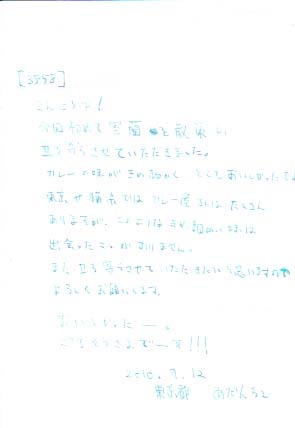 [3553]
こんにちは!
今回初めて 菌 と散策し
立ち寄らせていただきました。
カレーの味がきめ細かく、とてもおいしかったです
東京や横浜ではカレー屋さんはたくさん
ありますが、このようなきめ細かい味は
出会ったことがありません。
また立ち寄らせていただきたいと思いますので
よろしくお願いします。
おいしかったー。
ごちそうさまでーす!!!
2010.9.12
東京都